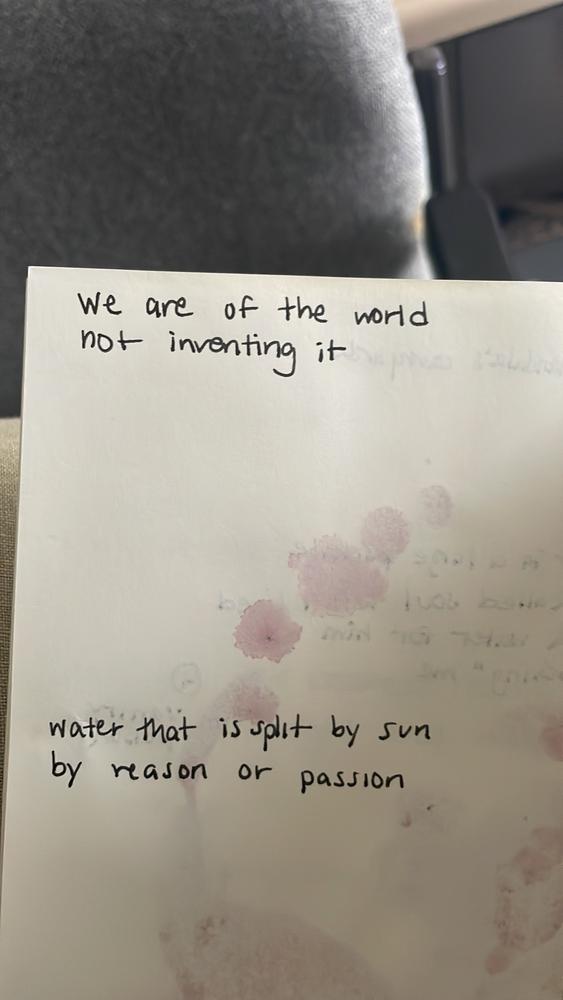 We are of the world
not inventing it
water that is split by sun
by reason or passion